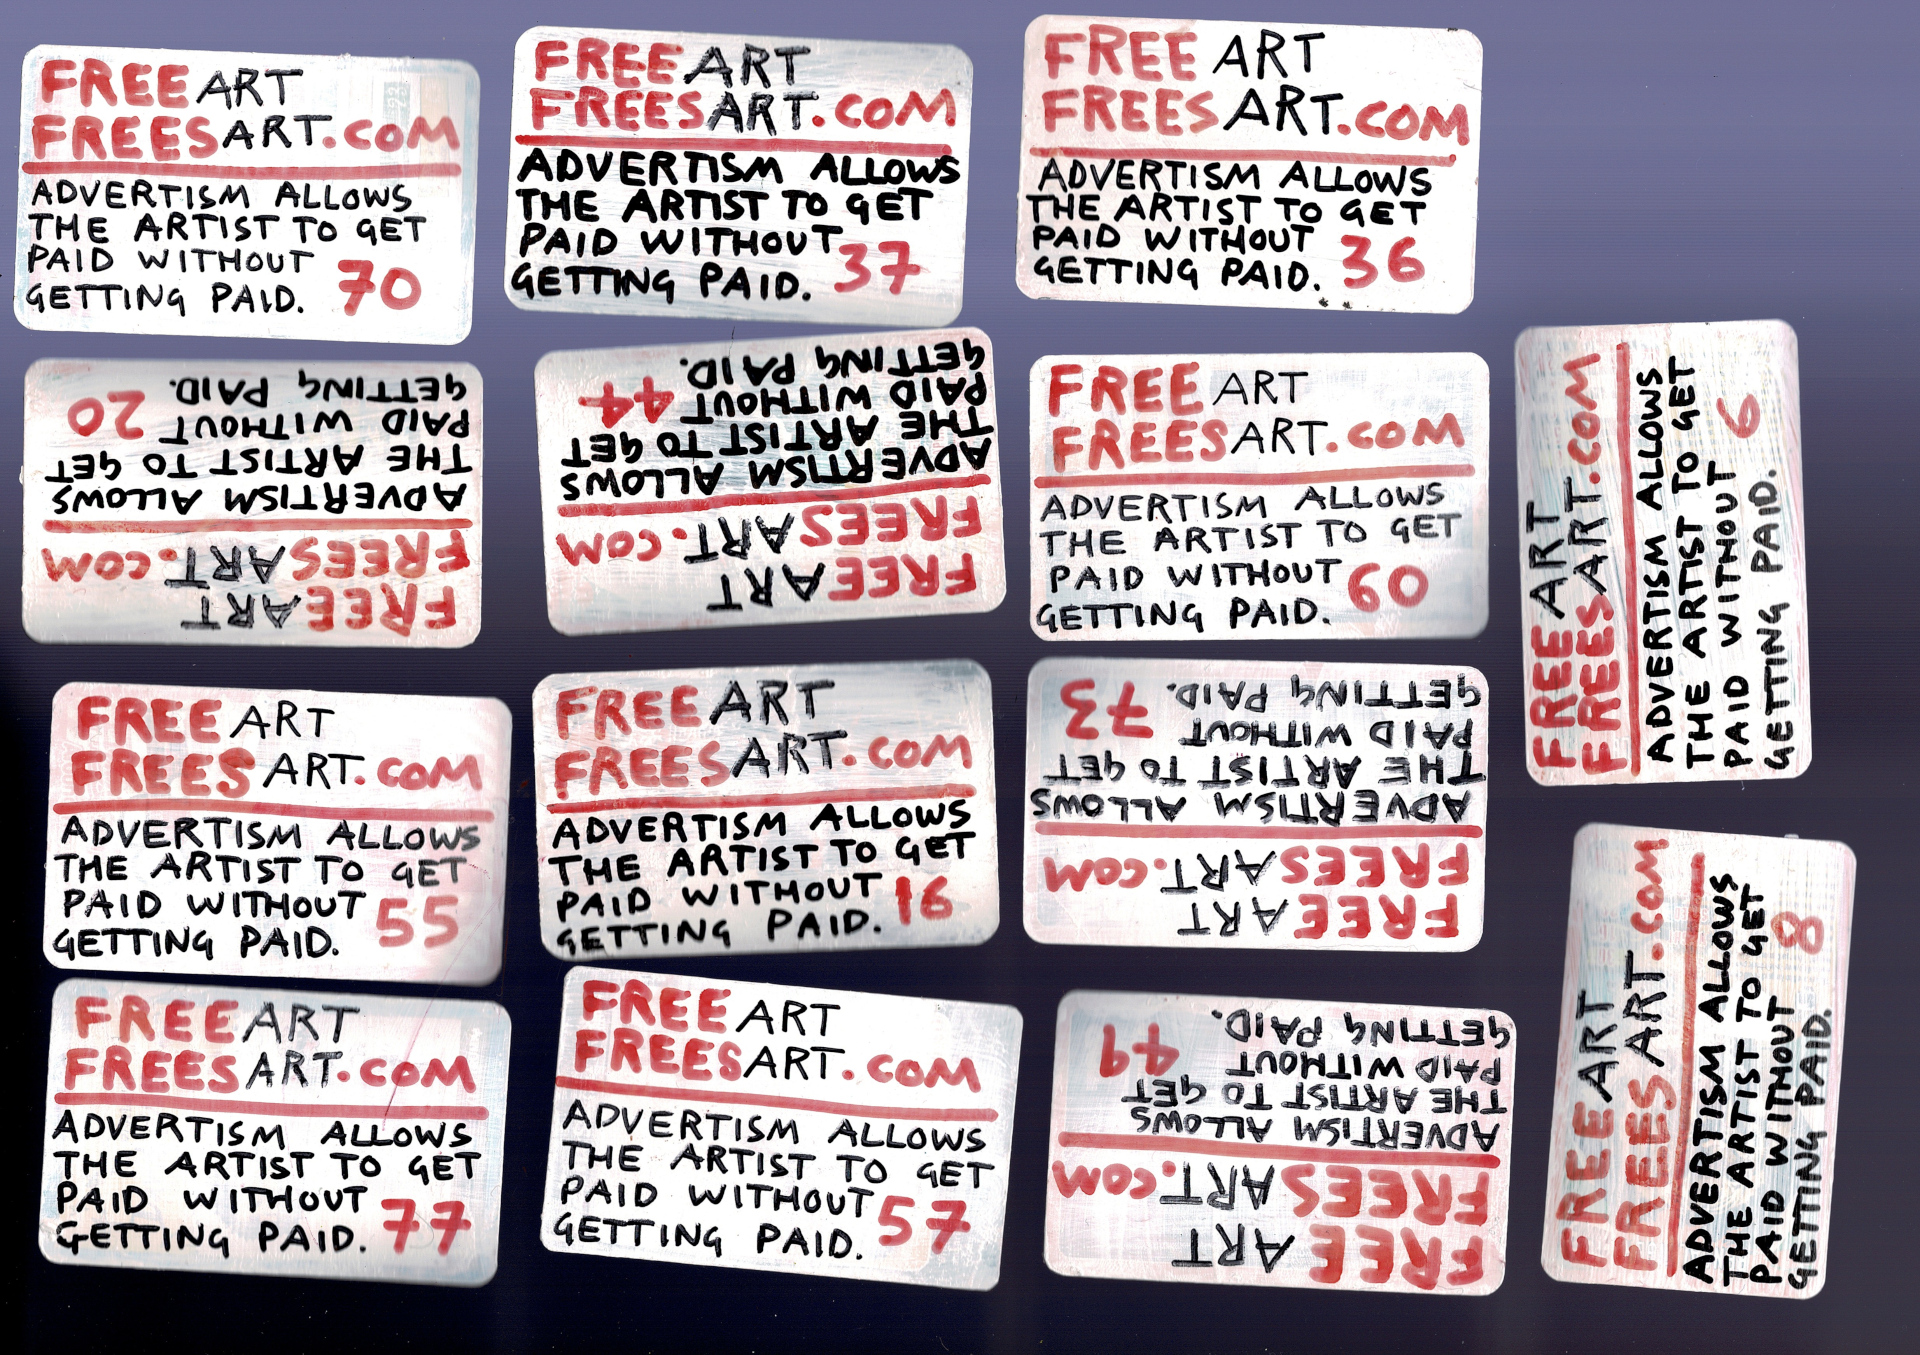 FREE ART
FREESART.COM
ADVERTISM ALLOWS
THE ARTIST TO GET
PAID WITHOUT
GETTING PAID. 70
FREE ART
FREESART.COM
ADVERTISM ALLOWS
THE ARTIST TO GET
PAID WITHOUT
GETTING PAID. 37
FREE ART
FREESART.COM
ADVERTISM ALLOWS
THE ARTIST TO GET
PAID WITHOUT
GETTING PAID. 36
FREE ART
FREESART.COM
ADVERTISM ALLOWS
THE ARTIST TO GET
PAID WITHOUT 20
GETTING PAID.
FREE ART
FREESART.COM
ADVERTISM ALLOWS
THE ARTIST TO GET
PAID WITHOUT 44
GETTING PAID.
FREE ART
FREESART.COM
ADVERTISM ALLOWS
THE ARTIST TO GET
PAID WITHOUT 60
GETTING PAID.
FREE ART
FREESART.COM
ADVERTISM ALLOWS
THE ARTIST TO GET
PAID WITHOUT 6
GETTING PAID.
FREE ART
FREES ART.COM
ADVERTISM ALLOWS
THE ARTIST TO GET
PAID WITHOUT 55
GETTING PAID.
FREE ART
FREESART.COM
ADVERTISM ALLOWS
THE ARTIST TO GET
PAID WITHOUT 16
GETTING PAID.
FREE ART
FREESART.COM
ADVERTISM ALLOWS
THE ARTIST TO GET
PAID WITHOUT 73
GETTING PAID.
FREE ART
FREES ART.COM
ADVERTISM ALLOWS
THE ARTIST TO GET
PAID WITHOUT 8
GETTING PAID.
FREE ART
FREESART.COM
ADVERTISM ALLOWS
THE ARTIST TO GET
PAID WITHOUT 77
GETTING PAID.
FREE ART
FREESART.COM
ADVERTISM ALLOWS
THE ARTIST TO GET
PAID WITHOUT 57
GETTING PAID.
FREE ART
FREESART.COM
ADVERTISM ALLOWS
THE ARTIST TO GET
PAID WITHOUT 49
GETTING PAID.